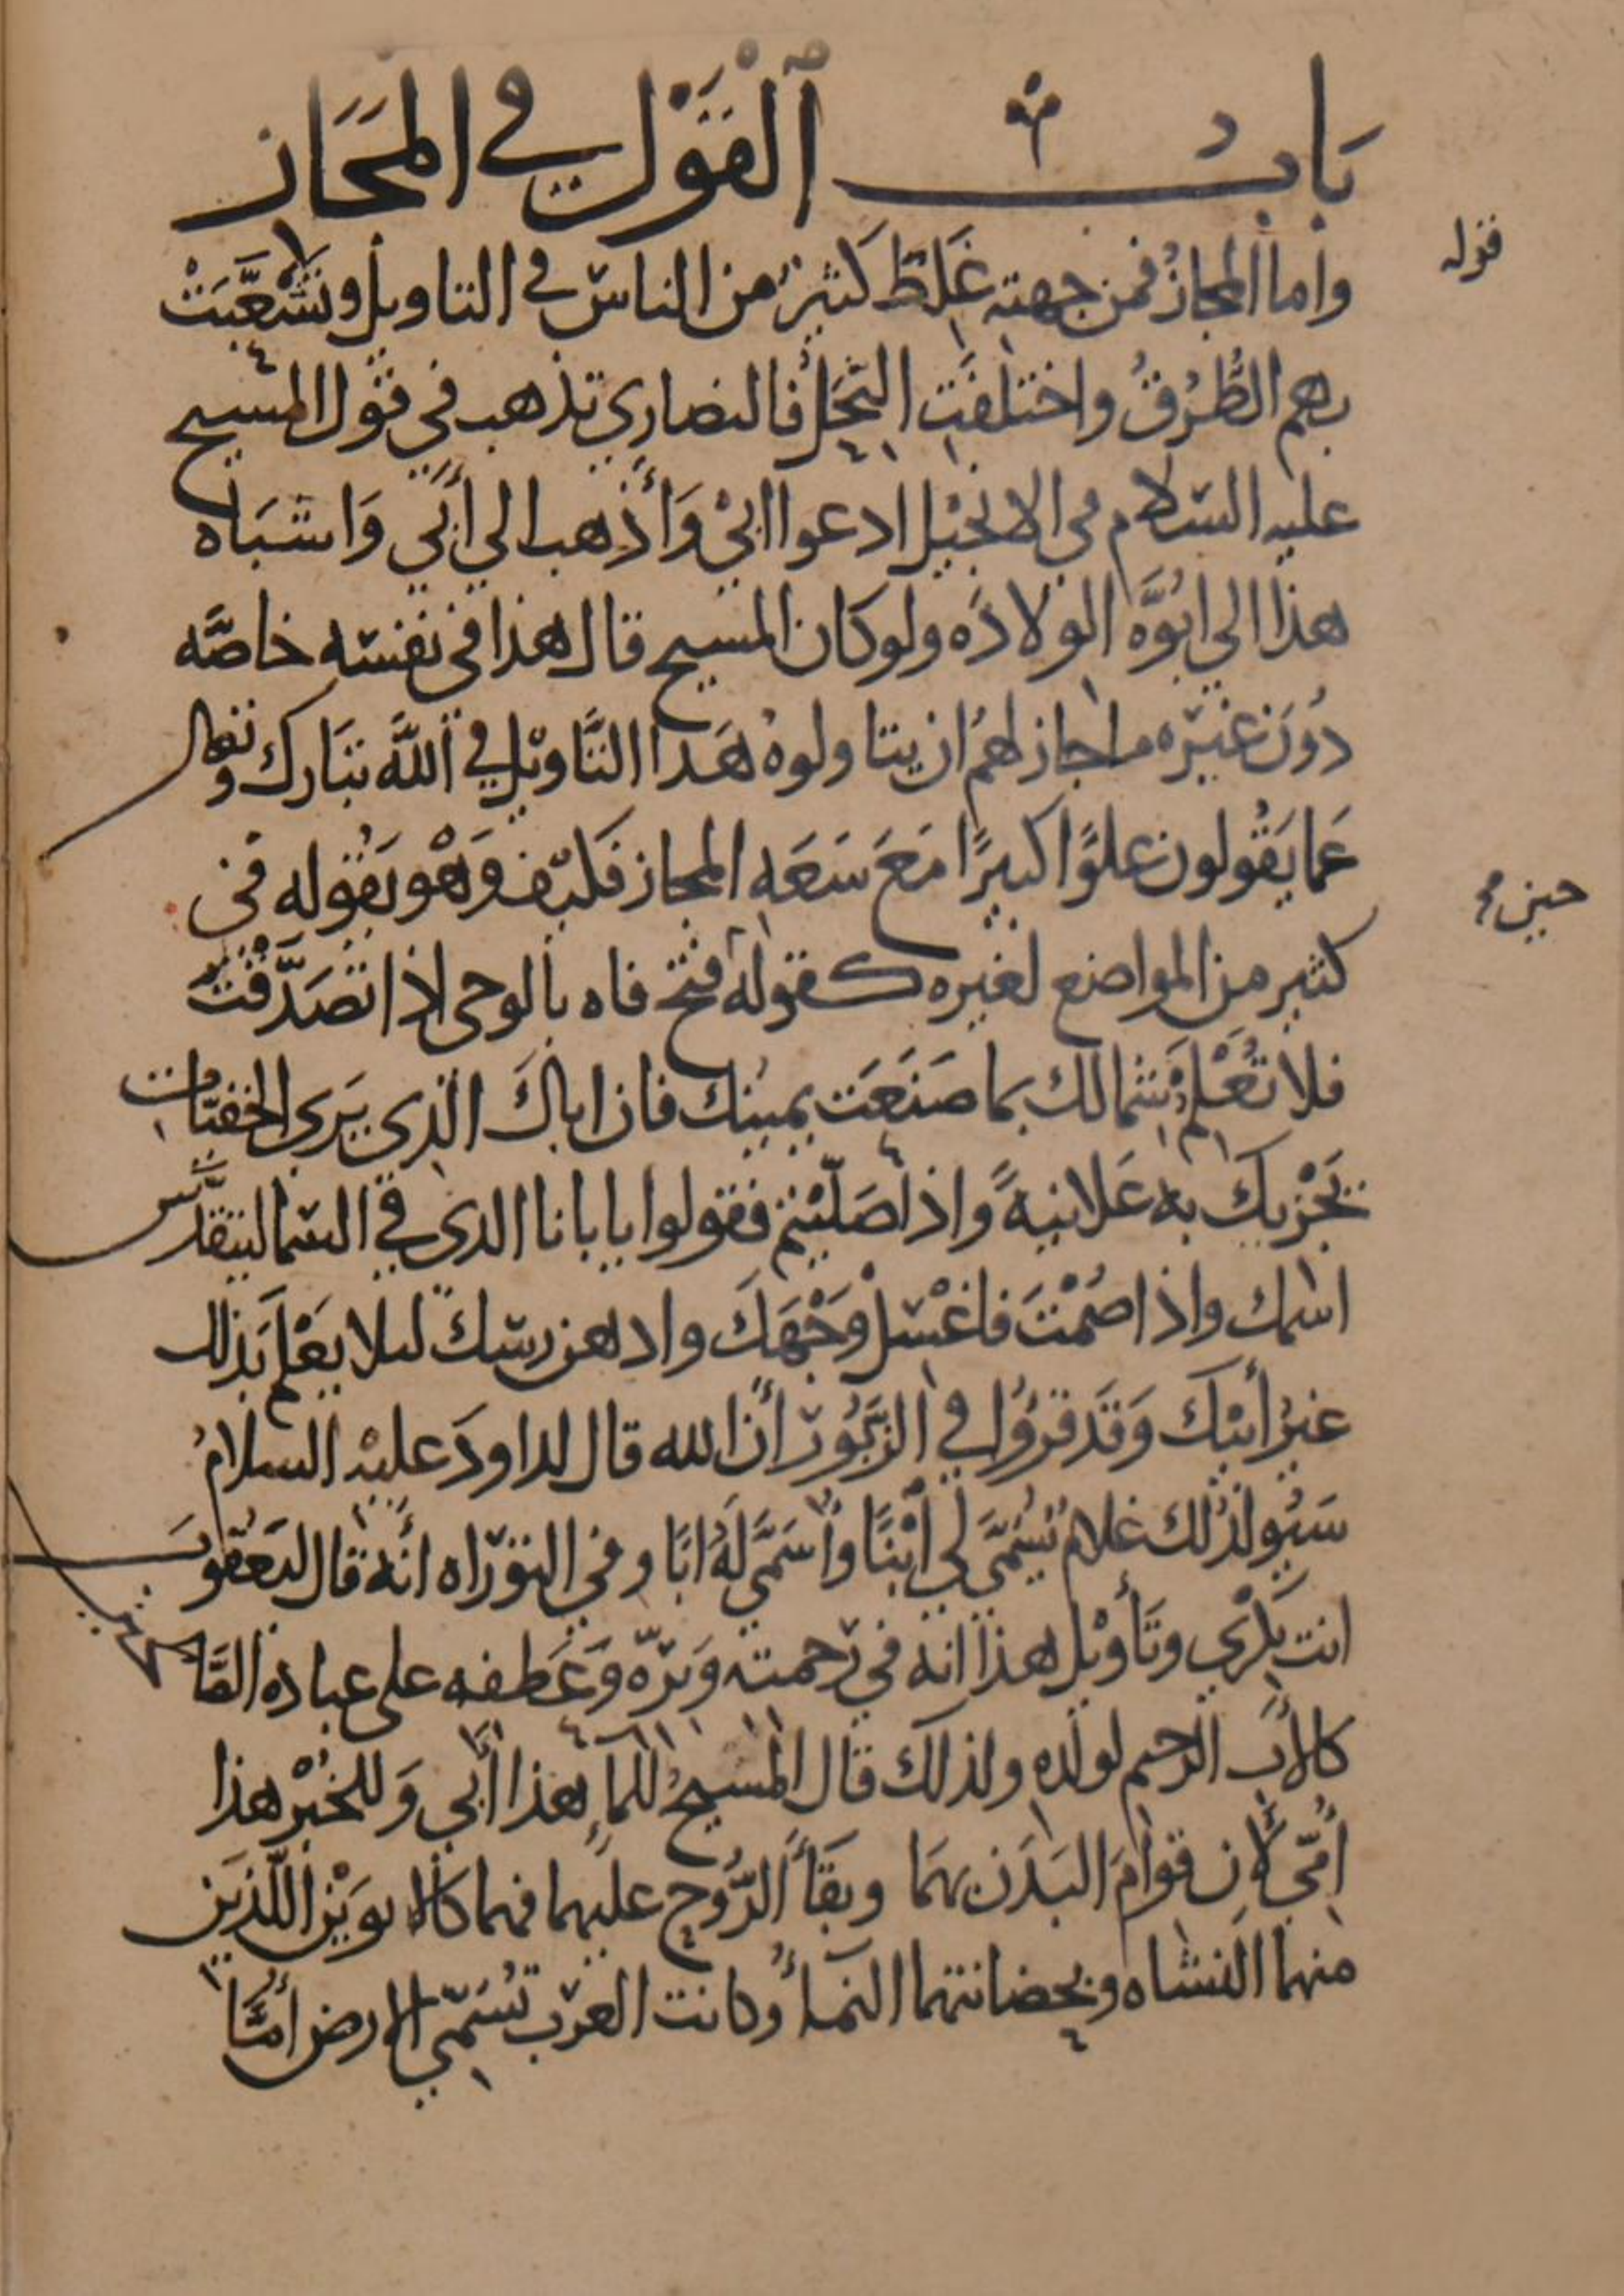 باب القَوْل في المَجَاز
واما المجازُ فمن جهته غَلِطَ كثيرٌ من الناس في التاويل وتشَعَّبَتْ
بهم الطُّرُقُ واختلفَت النِّحَلُ فالنصارى تذهب في قول المسيح
عليه السلام في الانجيل ادعوا ابي وَأذهب الى أبي وَاشبَاه
هذا الى ابُوَّه الولادَه ولو كان المسيح قال هذا في نفسه خاصَّه
دُونَ غيره ما جاز لهمُ ان يتاولوهُ هَذا التَّاويل في اللَّه تبَارك وتعالى
عَما يَقُولون علوًّا كبيرًا مَعَ سَعَه المجاز فكيف وَهْو يَقُوله في
كثير من المواضع لغيره كقوله فتح فاه بالوحى اذا تصَدَّقتَ
فلا تُعْلِمْ شمالك بما صَنَعَت يمينك فان اباكَ الذي يَرى الخفيَّات
يَجْزيك به عَلانيهً واذا صَلَّيْتم فقولوا يا بانا الذى في السما ليتقدَّس
اسمك واذا صُمْتَ فاغْسِلْ وَجْهَكَ وادهن رسك لىلا يَعْلم بَذلك
غيرُ أبيك وَقَد قرؤُا في الزَّبُور أن الله قال لداودَ عليْه السلامُ
سَيُولدُ لك غلامٌ يُسَمَّى لي ابْنًا وأُسَمَّى لَهُ ابًا وفي التوراه انه قال ليَعقوبَ
انت بِكْري وتَأويل هذا انه في رَحمته وَبرّه وَعَطفه على عباده الصَّالحين
كالأب الرحيم لولده ولذلك قال المَسيحُ للمآءِ هذا أبي وَللخُبْز هذا
أُمّي لأِن قوامَ البَدَن بهمَا وبَقَآَ الرُّوح عليهما فهما كالابوَيْن اللَّذَين
منهما النشاه وبحضانتهما النمآُ وكانت العَرَب تُسَمّي الارض أُمًّا
قوله
حين م